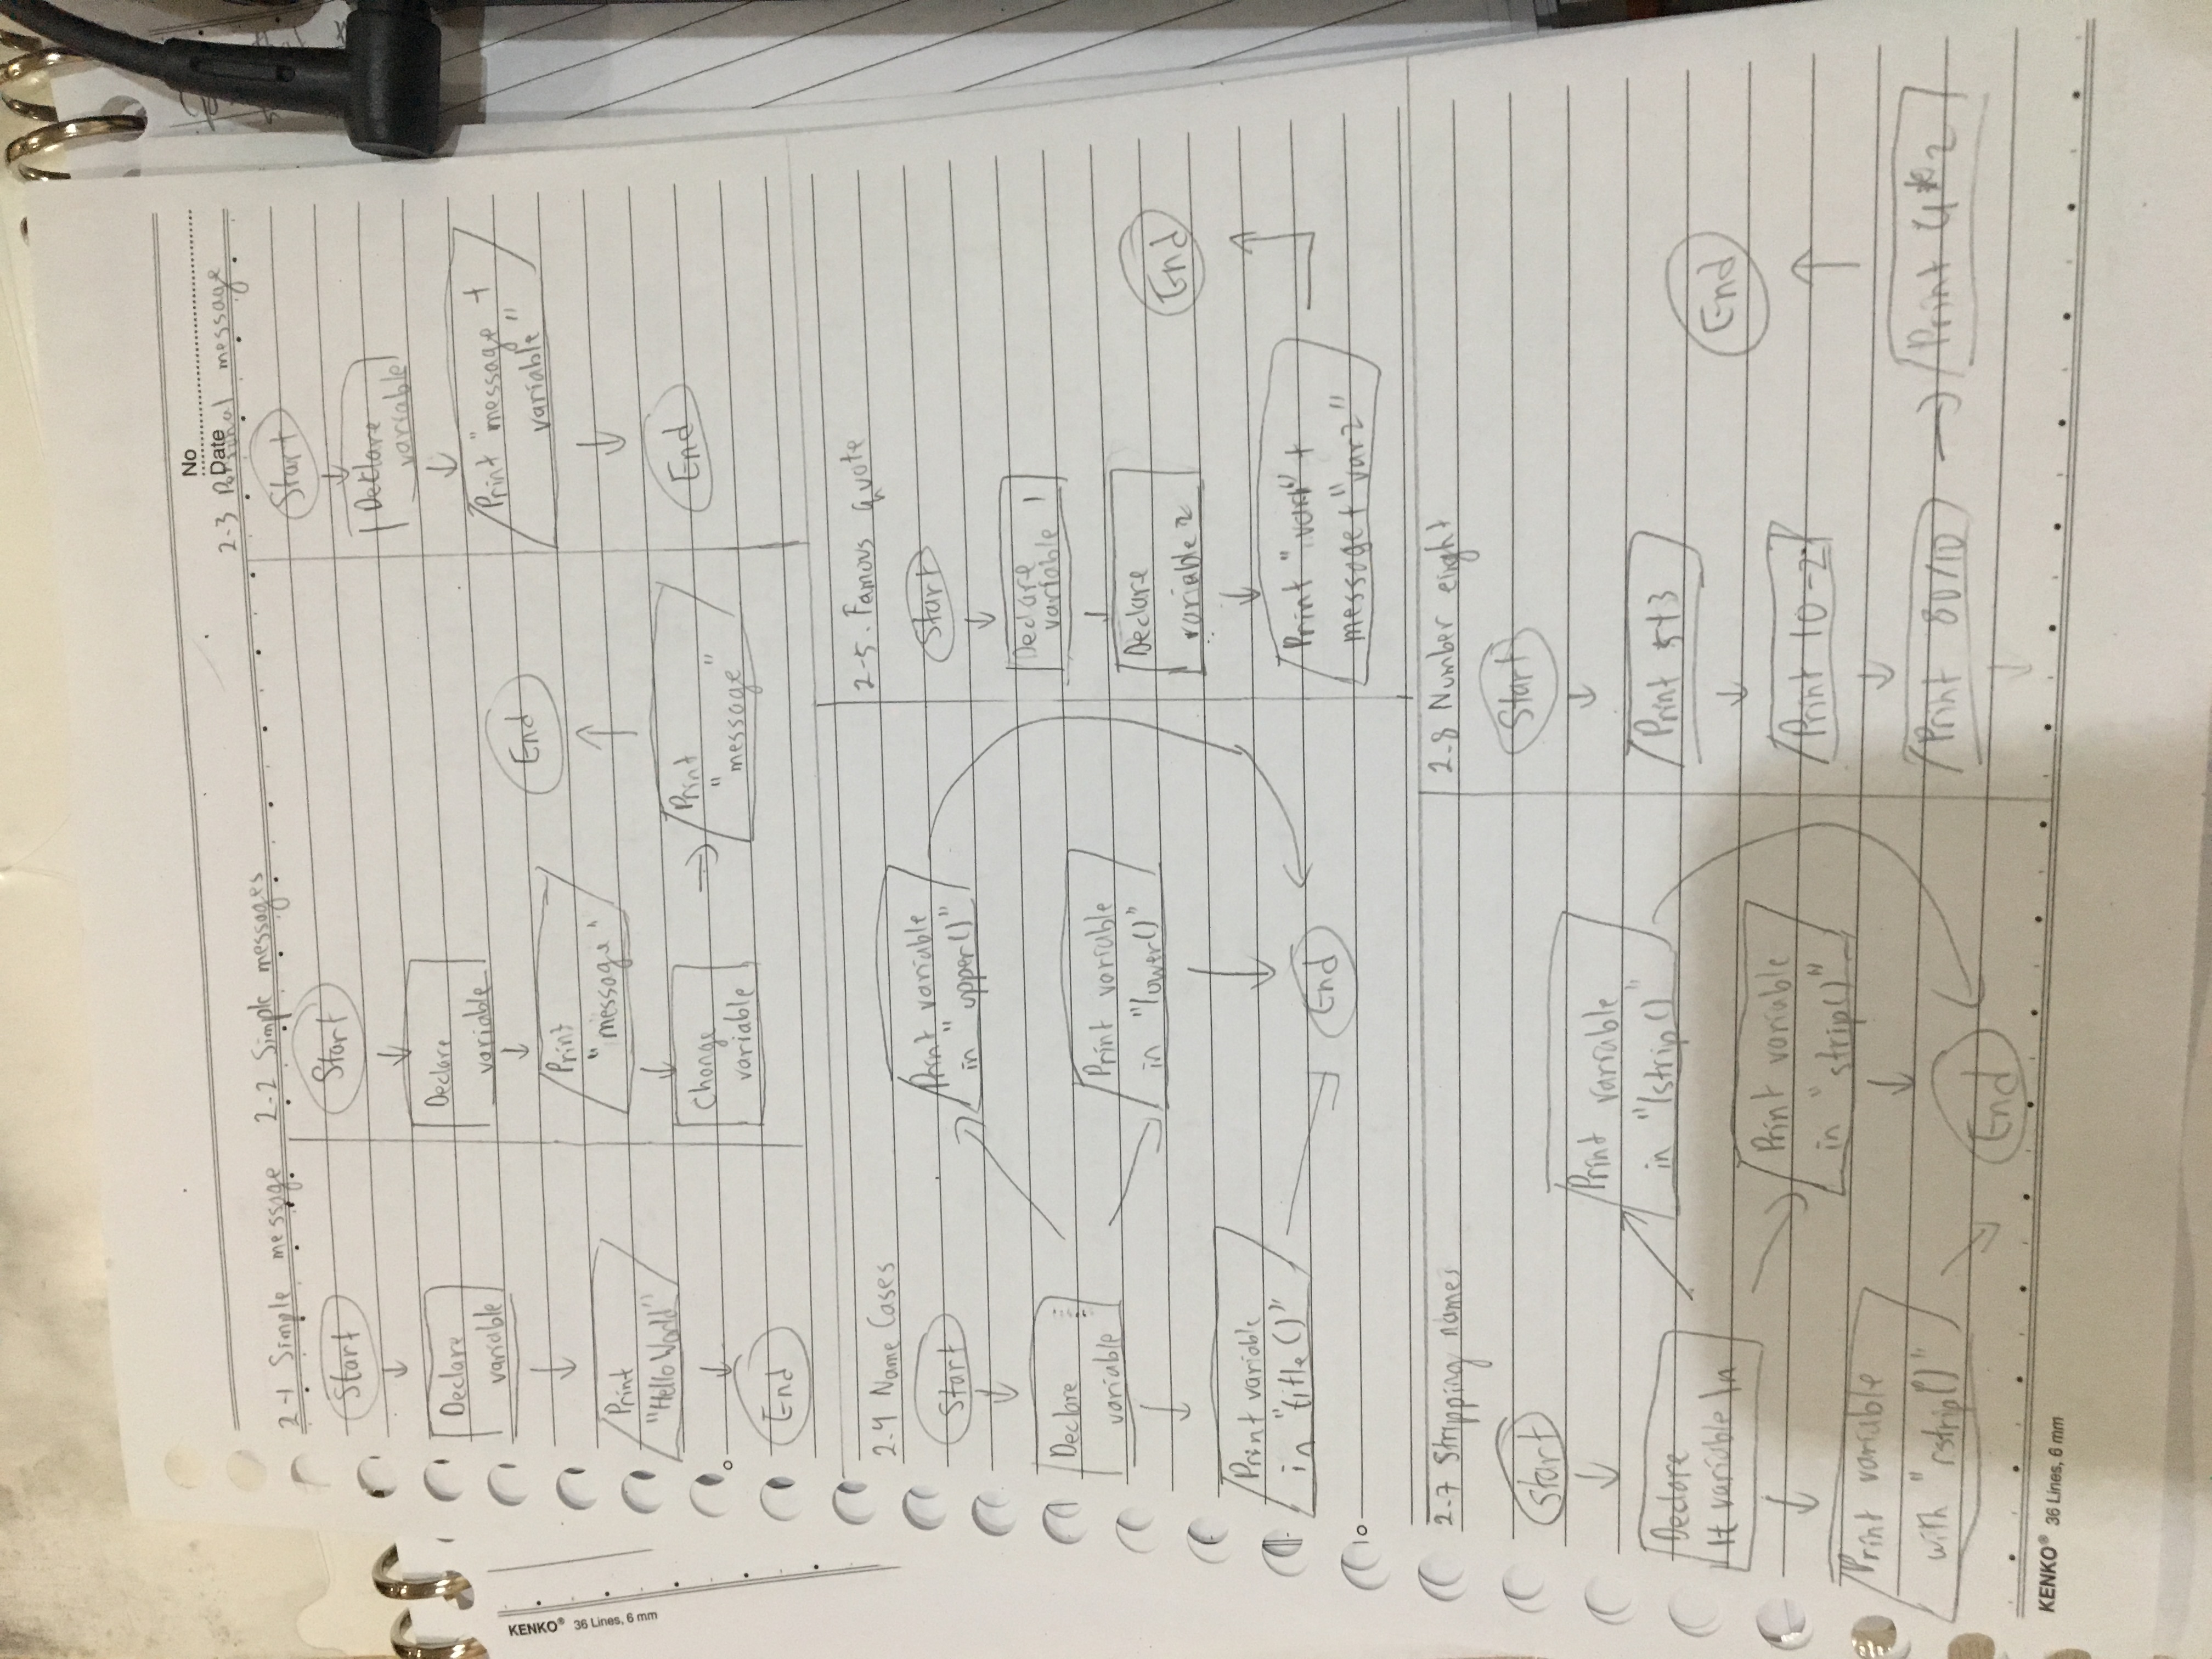 No
Date
2-1 Simple message
Start
Declare
variable
Print
"Hello World"
End
2-2 Simple messages
Start
Declare
variable
Print
"message"
Change
variable
Print
"message"
End
2-3 Personal message
Start
Declare
variable
Print "message +
variable"
End
2.4 Name Cases
Start
Declare
variable
Print variable
in "upper()"
Print variable
in "lower()"
Print variable
in "title()"
End
2-5. Famous quote
Start
Declare
variable 1
Declare
variable 2
Print "var1" +
message + "var2"
End
10
2-7 Stripping names
Start
Declare
\t variable \n
Print variable
in "lstrip()"
Print variable
in "strip()"
Print variable
with "rstrip()"
End
2-8 Number eirght
Start
Print 5+3
Print 10-2
Print 80/10
Print 4*2
End
KENKO® 36 Lines, 6 mm
KENKO® 36 Lines, 6 mm